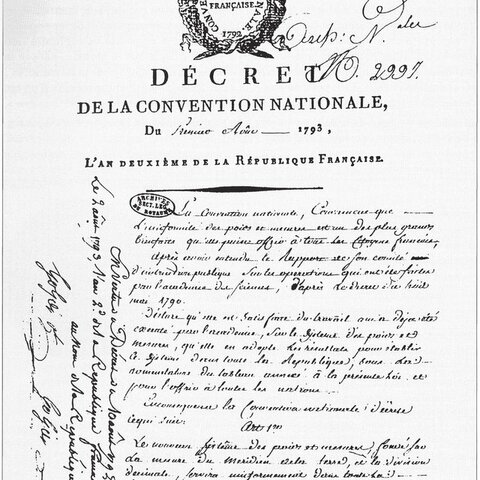 CONVENTION NATIONALE.
FRANÇAISE.
1792
N. 2997.
DÉCRET
DE LA CONVENTION NATIONALE,
Du premier Août 1793,
L'AN DEUXIÈME DE LA RÉPUBLIQUE FRANÇAISE.
ARCHIVES
SECT. LEG.
DU ROYAUME
La Convention nationale, Convaincue que
L'uniformité des poids et mesures est un des plus grands
bienfaits qu'elle puisse offrir à tous les Citoyens français,
après avoir entendu le Rapport de son comité
d'instruction publique sur les opérations qui ont été faites
par l'académie des sciences, d'après le Decret du huit
mai 1790.
Déclare qu'elle est satisfaite du travail qui a déja été
par l'académie, sur le systeme des poids et
mesures, qu'elle en adopte les résultats pour établir
ce systeme dans toute la République, sous la
nomenclature du tableau annexé à la présente loi, et
pour l'offrir à toutes les nations
En conséquence la Convention nationale décrete
ce qui suit:
Art 1er
Le nouveau systeme des poids et mesures, fondé sur
La mesure du méridien de la terre, et la division
décimale, servira uniformement dans toute la
Le 2 août 1793 l'an 2d de la République française
au Nom de la République